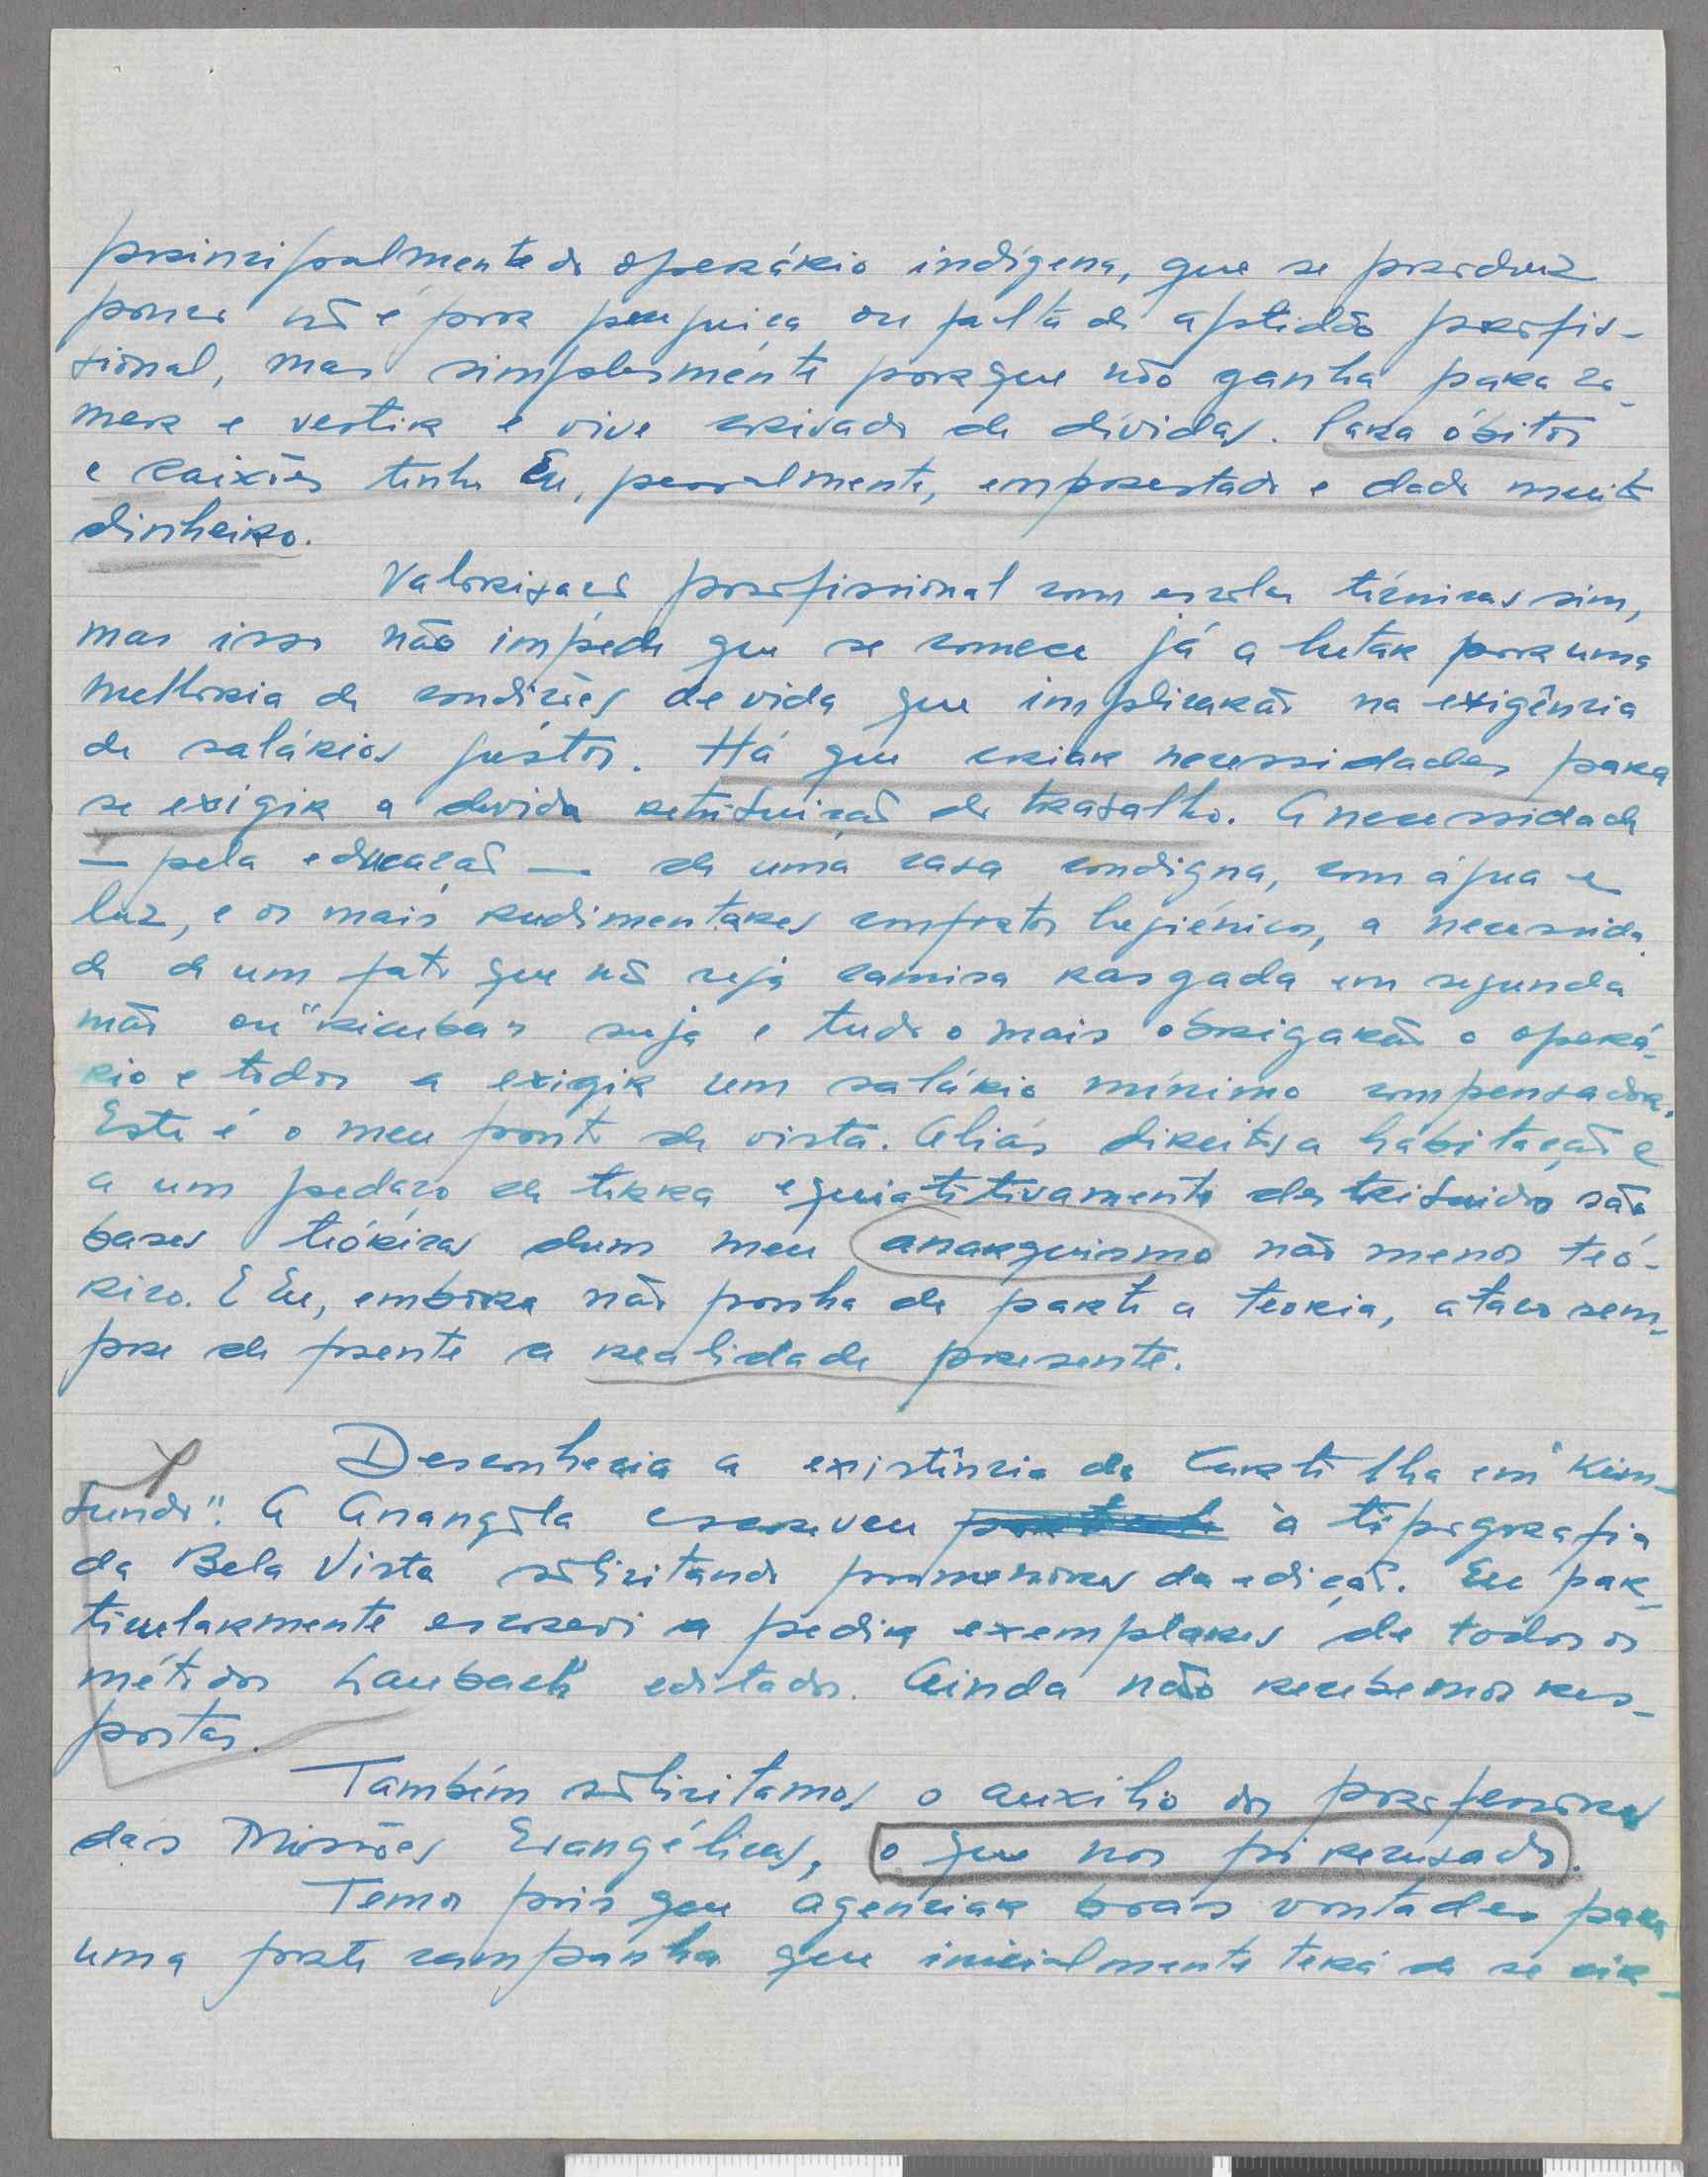 principalmente do operário indígena, que se produz
pouco não é por preguiça ou falta de aptidão profis-
sional, mas simplesmente porque não ganha para co-
mer e vestir e vive crivado de dívidas. Para óbitos
e caixões tenho Eu, pessoalmente, emprestado e dado muito
dinheiro.
Valorisação profissional com escolas técnicas sim,
mas isso não impede que se comece já a lutar por uma
melhoria de condições de vida que implicarão na exigência
de salários justos. Há que criar necessidades para
se exigir a devida retribuição do trabalho. A necessidade
— pela educação — de uma casa condigna, com água e
luz, e os mais rudimentares confortos higiénicos, a necessida
de de um fato que não seja camisa rasgada em segunda
mão ou "kicuba" suja e tudo o mais obrigarão o operá-
rio e todos a exigir um salário mínimo compensador.
Este é o meu ponto de vista. Aliás direitos a habitação e
a um pedaço de terra equiatitivamente destribuidos são
bases teóricas dum meu anarquismo não menos teó-
rico. E Eu, embora não ponha de parte a teoria, ataco sem-
pre de frente a realidade presente.
Desconhecia a existência da Cartilha em "Kim-
bundo". A Anangola escreveu à tipografia
da Bela Vista solicitando promenores da edição. Eu par-
ticularmente escrevi a pedir exemplares de todos os
métodos Laubach editados. Ainda não recebemos res-
postas.
Também solicitamos o auxilio dos professores
das Missões Evangélicas, o que nos foi recusado.
Temos pois que agenciar boas vontades para
uma forte campanha que inicialmente terá de se cir-